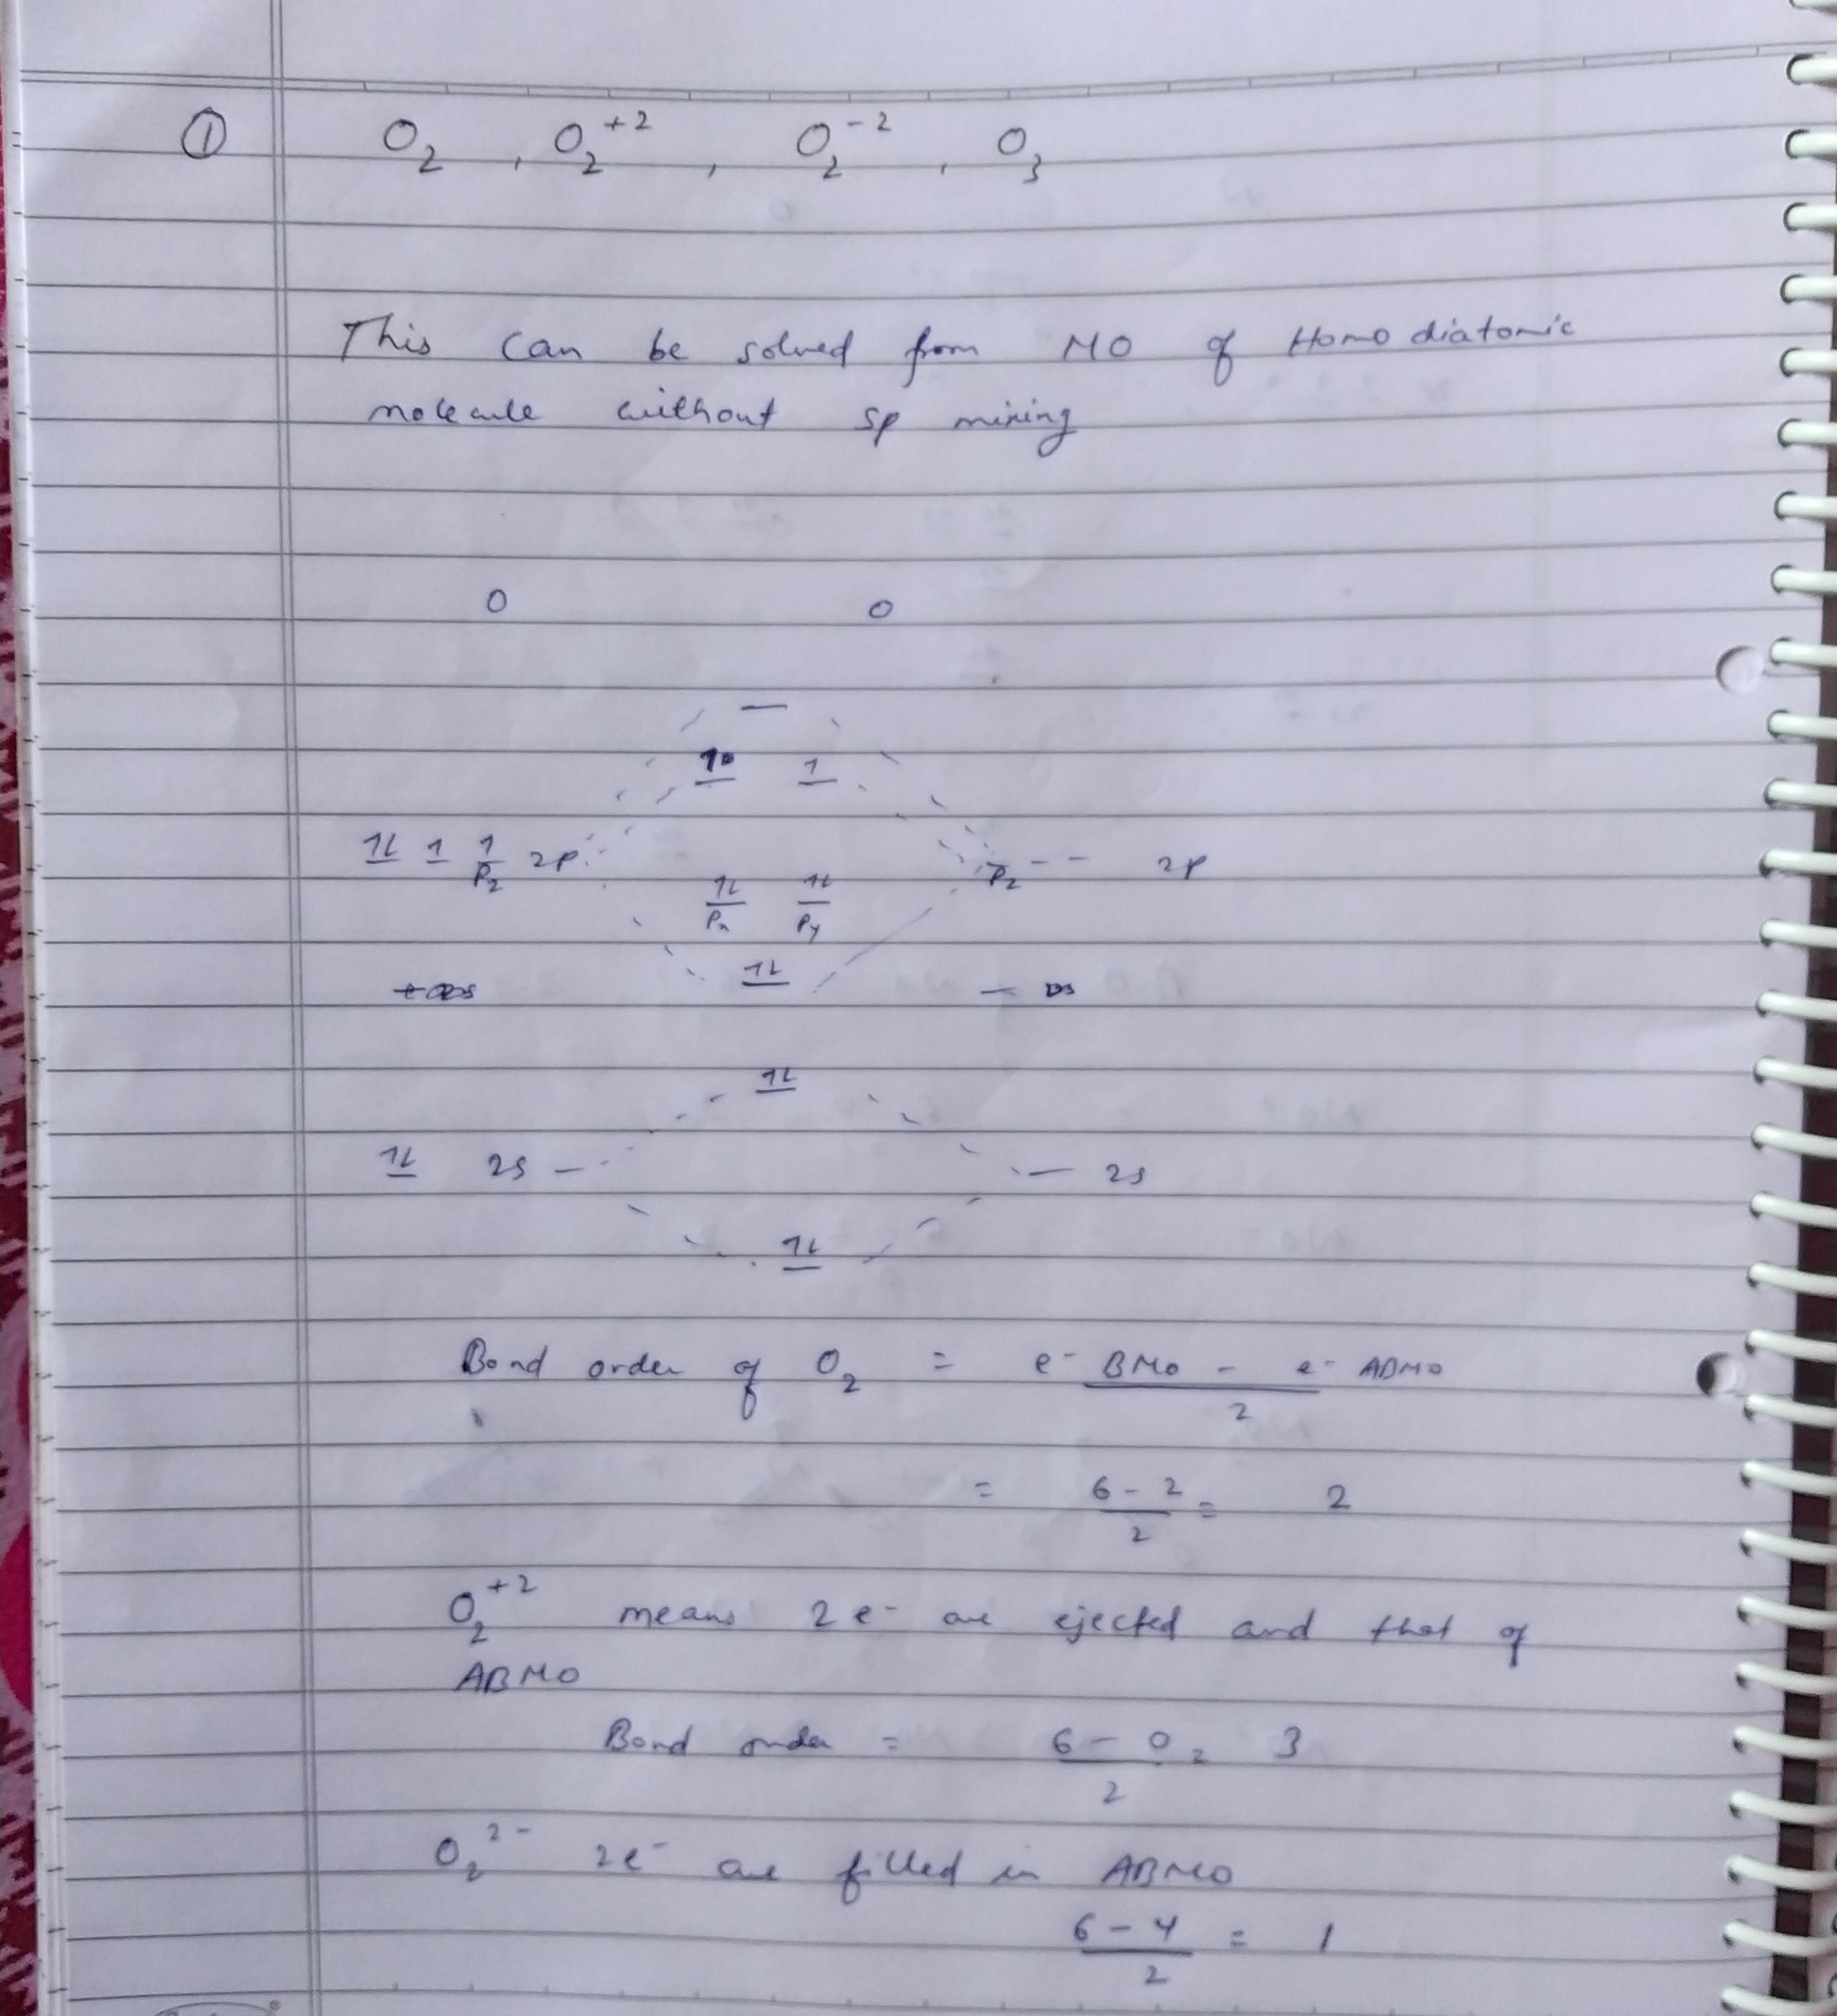 ① O₂ , O₂⁺² , O₂⁻² , O₃
This can be solved from MO of Homo diatomic
molecule without sp mixing
O O
1 1
1L 1 1 2p Pz - - 2p
Pz
1L 1L
Px Py
1L
1L
1L 2s — — 2s
1L
Bond order of O₂ = e⁻ BMO - e⁻ ABMO
2
= 6 - 2 = 2
2
O₂⁺² means 2 e⁻ are ejected and that of
ABMO
Bond order = 6 - 0 = 3
2
O₂²⁻ 2e⁻ are filled in ABMO
6 - 4 = 1
2